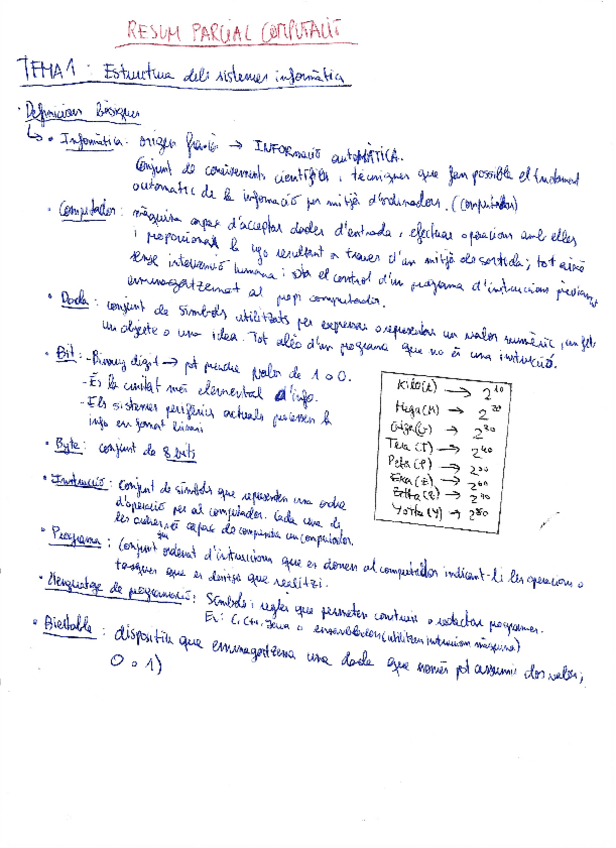 RESUM PARCIAL COMPUTACIÓ
TEMA 1: Estructura dels sistemes informàtics
· Definicions bàsiques
↳ • Informàtica: origen francès → INFORmació autoMÀTICA.
Conjunt de coneixements científics i tècniques que fan possible el tractament
automàtic de la informació per mitjà d'ordinadors. (computador)
• Computador: màquina capaç d'acceptar dades d'entrada, efectuar operacions amb elles
i proporcionar la resultant a través d'un mitjà de sortida; tot això
sense intervenció humana i sota el control d'un programa d'instruccions prèviament
emmagatzemat al propi computador.
• Dada: conjunt de símbols utilitzats per expressar o representar un valor numèric, un fet,
un objecte o una idea. Tot allò d'un programa que no és una instrucció.
• Bit: - Binary digit → pot prendre valor de 1 o 0.
- És la unitat més elemental d'info.
- Els sistemes perifèrics actuals processen la
info en format binari
Kilo(k) → 2^10
Mega(M) → 2^20
Giga(G) → 2^30
Tera(T) → 2^40
Peta(P) → 2^50
Exa(E) → 2^60
Zetta(Z) → 2^70
Yotta(Y) → 2^80
• Byte: conjunt de 8 bits
• Instrucció: conjunt de símbols que representen una ordre
d'operació per al computador. Cada una de
les ordres és capaç de un computador.
• Programa: Conjunt ordenat d'instruccions que es donen al computador indicant-li les operacions o
tasques que es desitja que realitzi.
• Llenguatge de programació: Símbols i regles que permeten construir o redactar programes.
Ex: C, C++, Java o (utilitzen instruccions màquina)
• Biestable: dispositiu que emmagatzema una dada que només pot assumir dos valors;
0 o 1)